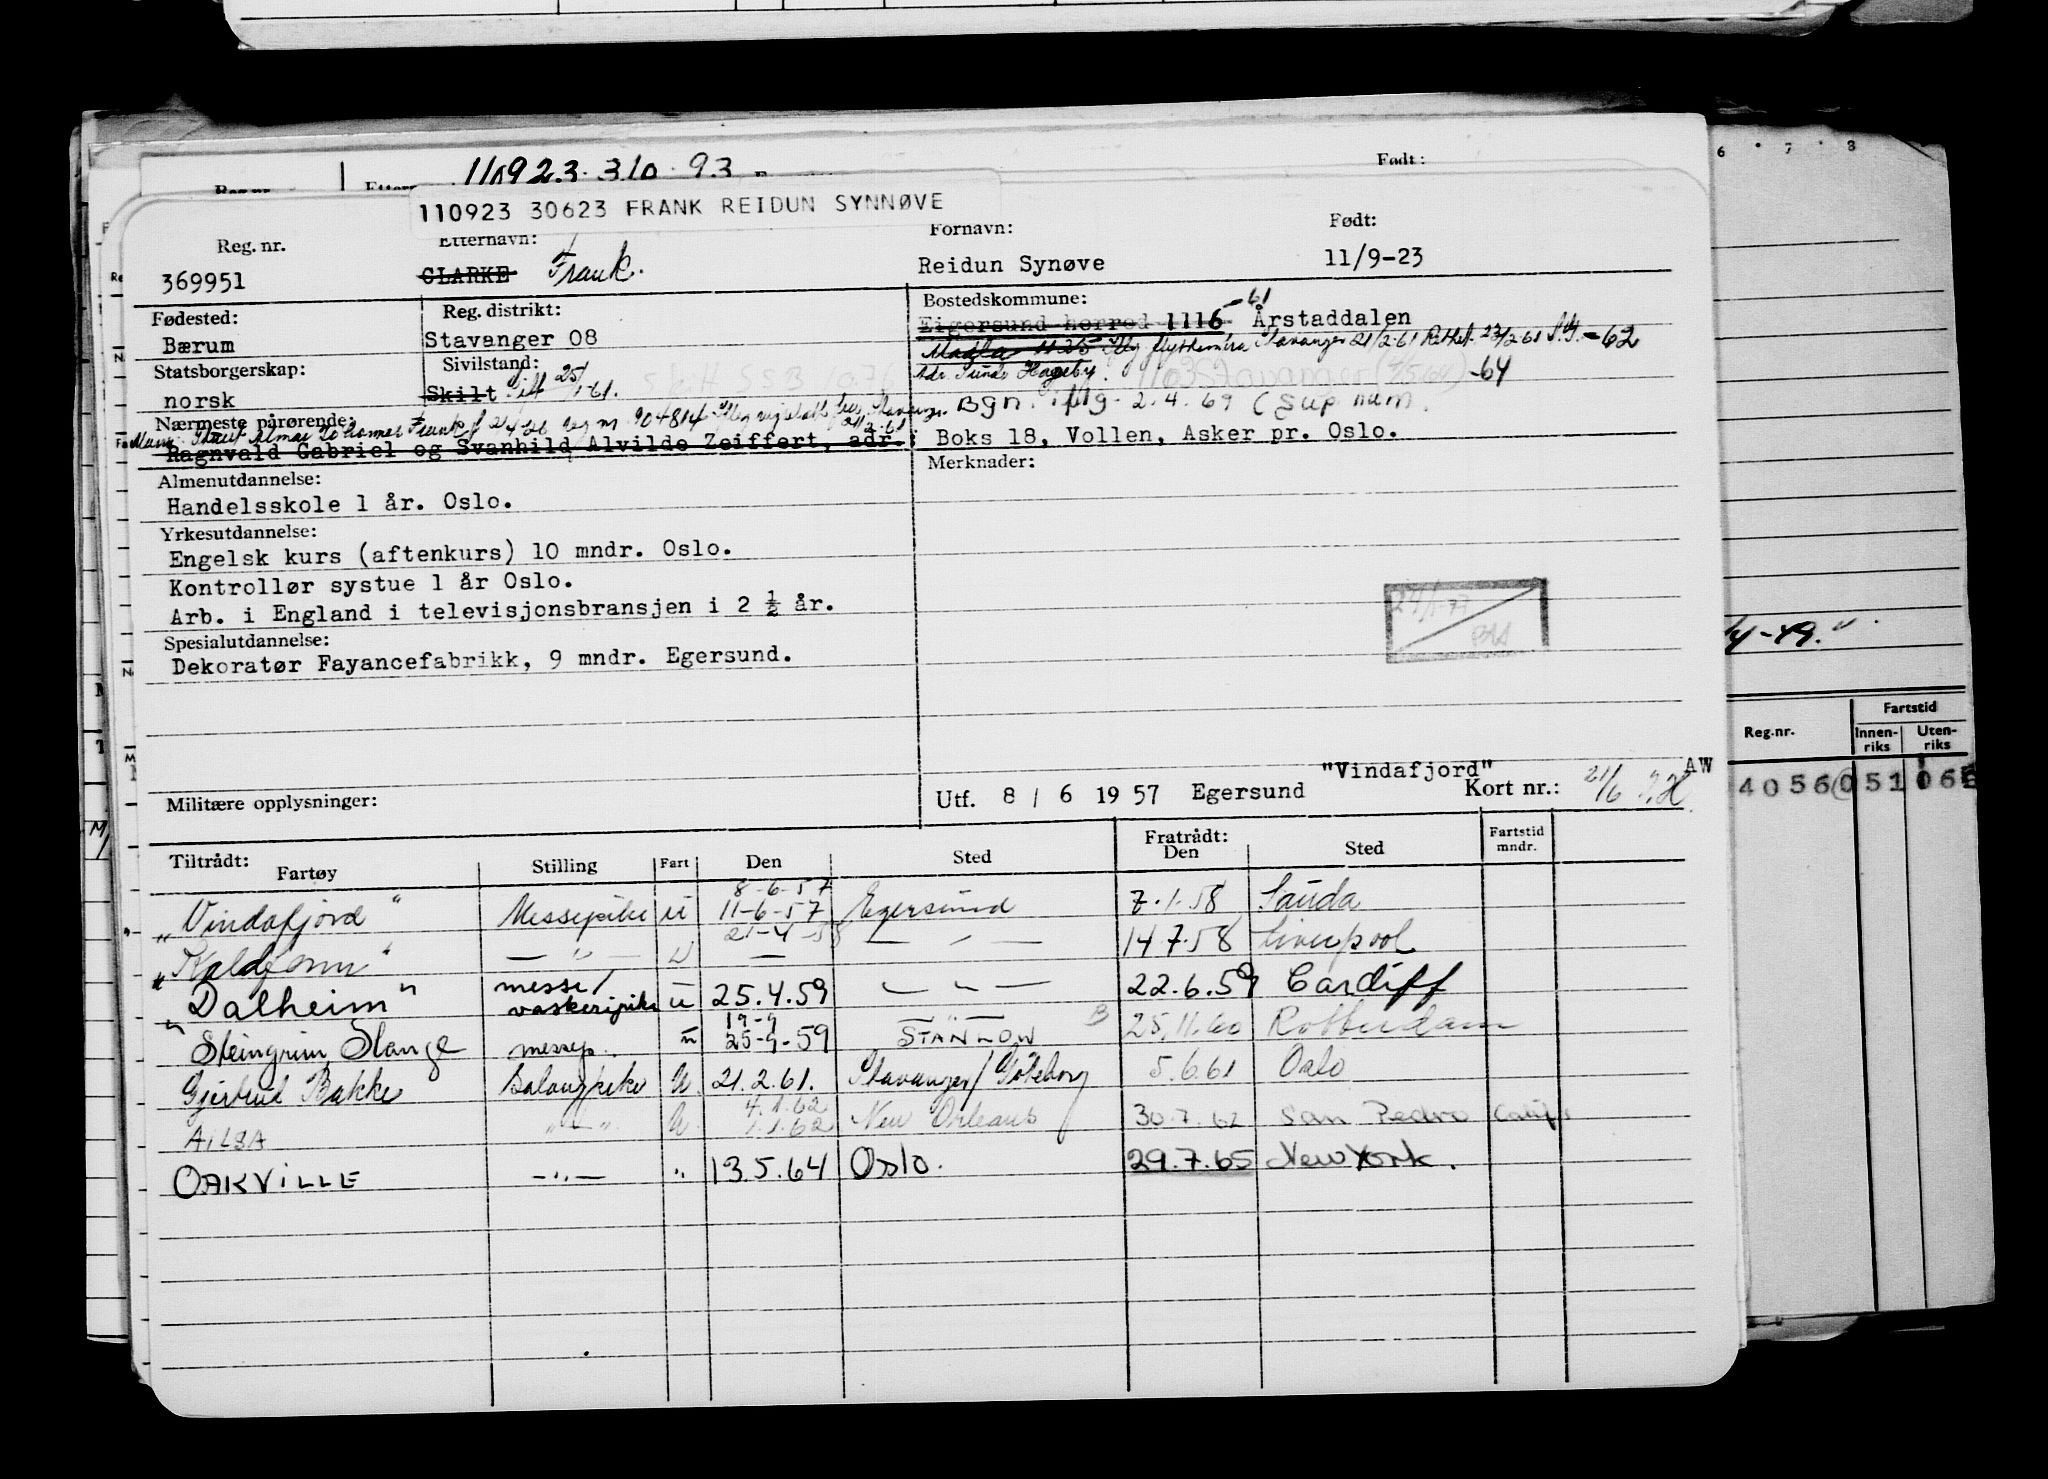 Født:
110923 310 93
110923 30623 FRANK REIDUN SYNNØVE
Reg. nr. Etternavn: Fornavn: Født:
369951 CLARKE Frank. Reidun Synøve 11/9-23
Fødested: Reg. distrikt: Bostedskommune: -61
Bærum Stavanger 08 Eigersund herred 1116 Årstaddalen
Madla Stavanger 21/2-61 -62
Statsborgerskap: Sivilstand: Adr. Sunde Hageby. 1103 Stavanger -64
norsk Skilt Gift 25/1-61.
Bgn. iflg. 2.4.69 (Sup num.
Nærmeste pårørende:
Ragnvald Gabriel og Svanhild Alvilde Zeiffert, adr. Boks 18, Vollen, Asker pr. Oslo.
Almenutdannelse: Merknader:
Handelsskole 1 år. Oslo.
Yrkesutdannelse:
Engelsk kurs (aftenkurs) 10 mndr. Oslo.
Kontrollør systue 1 år Oslo.
Arb. i England i televisjonsbransjen i 2 ½ år.
Spesialutdannelse:
Dekoratør Fayancefabrikk, 9 mndr. Egersund.
"Vindafjord" AW
Militære opplysninger: Utf. 8 / 6 19 57 Egersund Kort nr.: 21/6
Tiltrådt: Fratrådt: Fartstid mndr.
Fartøy Stilling Fart Den Sted Den Sted
"Vindafjord" Messepike u 8-6-57 11-6-57 Egersund 7.1.58 Sauda
" — " — u 21-4-58 — " — 14.7.58 Liverpool
"Dalheim" messe/ vaskeripike u 25.4.59 — " — 22.6.59 Cardiff
Steingrim Slange messep. u 19-9 25-9-59 STANLOW B 25.11.60 Rotterdam
Gjertrud Bakke Salongpike U 21.2.61. Stavanger/Göteborg 5.6.61 Oslo
AILSA — " — U. 4.1.62 1.1.62 New Orleans 30.7.62 San Pedro Calif.
OAKVILLE — " — " 13.5.64 Oslo. 29.7.65 New York.
6 7 8
4-49."
Reg.nr. Fartstid
Innen-riks Uten-riks
40560 51 06